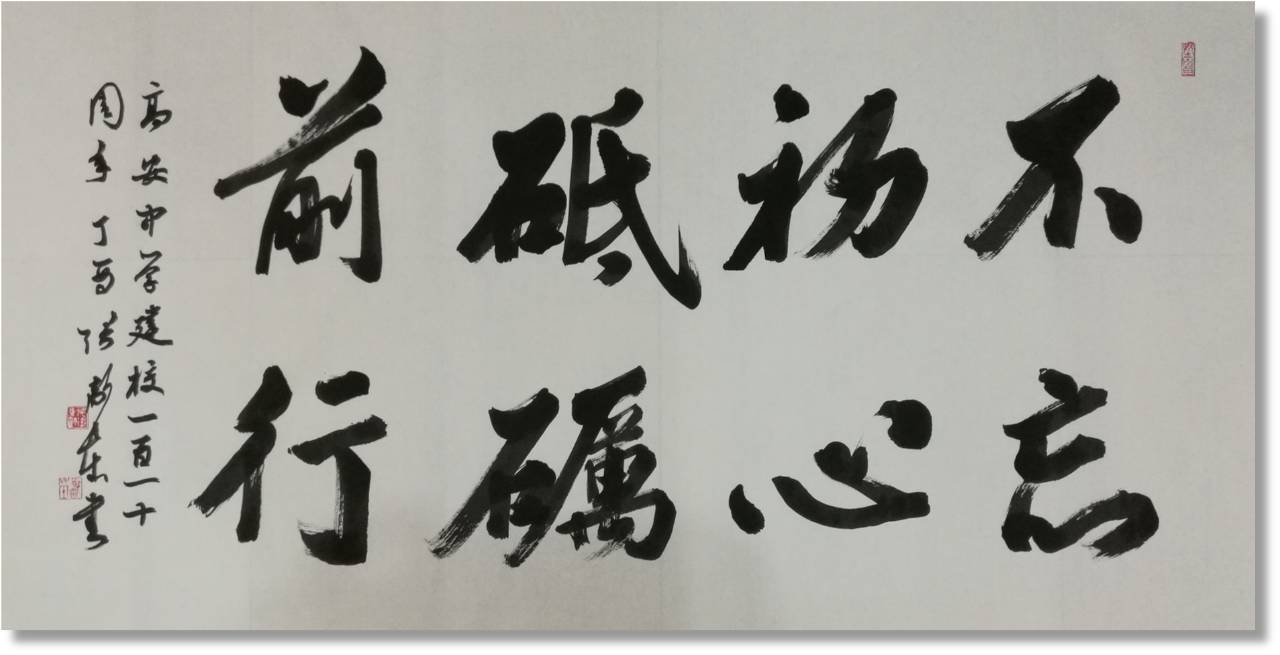 不忘
初心
砥礪
前行
高安中学建校一百一十
周年 丁酉 张 书